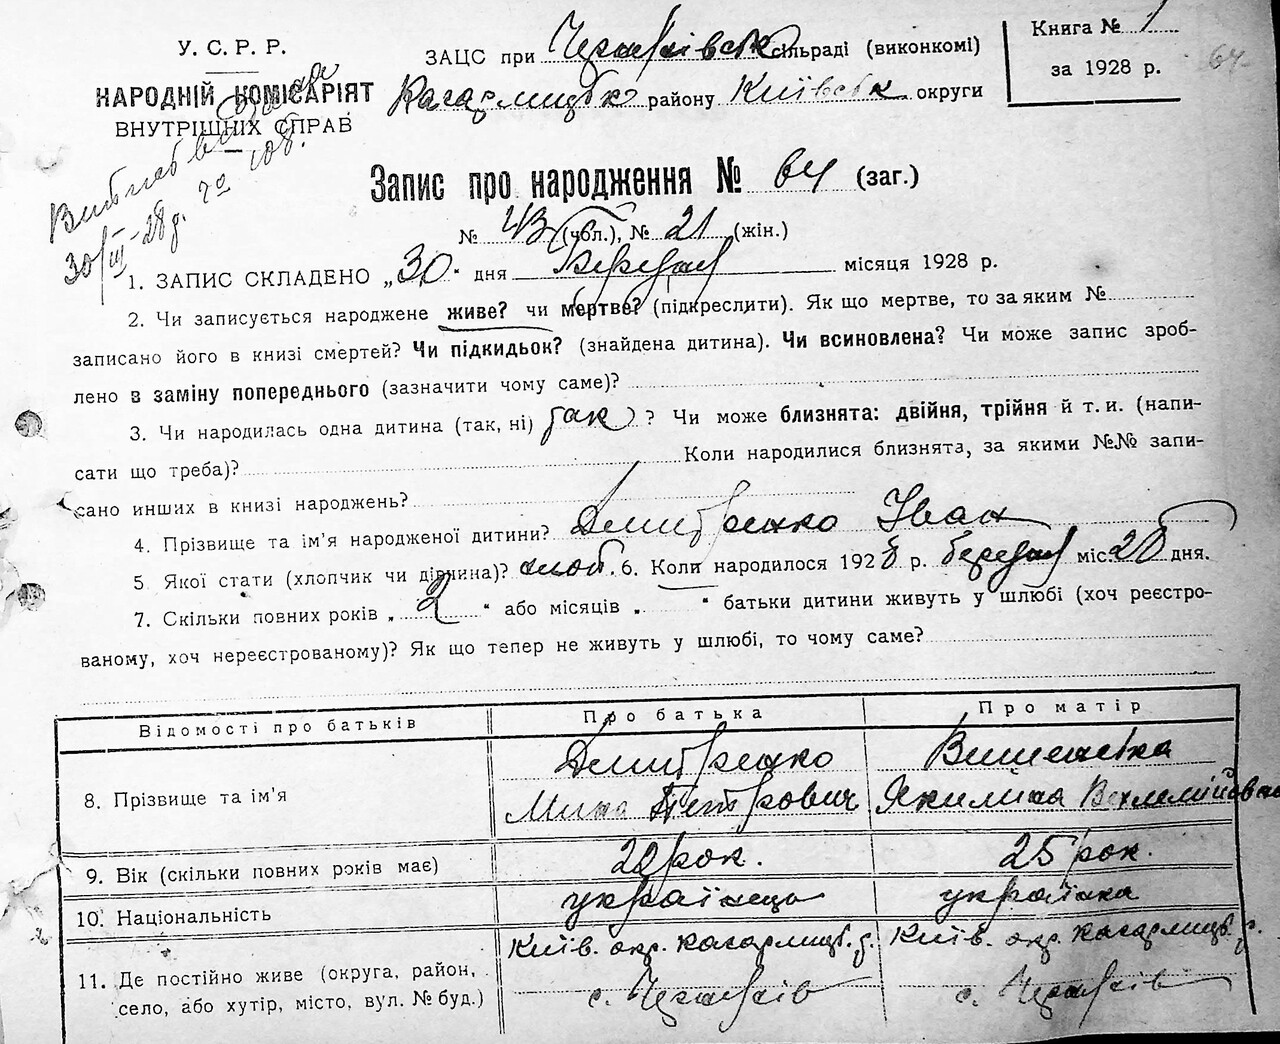 У. С. Р. Р.
НАРОДНІЙ КОМІСАРІЯТ
ВНУТРІШНІХ СПРАВ
ЗАЦС при сільраді (виконкомі)
Кагарлицьк району Київськ округи
Книга № 1
за 1928 р.
64
30/III-28 р.
Запис про народження № 64 (заг.)
№ 43 (чол.), № 21 (жін.)
1. ЗАПИС СКЛАДЕНО „30“ дня Березня місяця 1928 р.
2. Чи записується народжене живе? чи мертве? (підкреслити). Як що мертве, то за яким №
записано його в книзі смертей? Чи підкидьок? (знайдена дитина). Чи всиновлена? Чи може запис зроб-
лено в заміну попереднього (зазначити чому саме)?
3. Чи народилась одна дитина (так, ні) так ? Чи може близнята: двійня, трійня й т. и. (напи-
сати що треба)? Коли народилися близнята, за якими №№ запи-
сано инших в книзі народжень?
4. Прізвище та ім'я народженої дитини? Дмитренко Іван
5. Якої стати (хлопчик чи дівчина)? 6. Коли народилося 1928 р. березня міс. 26 дня.
7. Скільки повних років „ 2 “ або місяців „ “ батьки дитини живуть у шлюбі (хоч реєстро-
ваному, хоч нереєстрованому)? Як що тепер не живуть у шлюбі, то чому саме?
Відомості про батьків Про батька Про матір
8. Прізвище та ім'я Дмитренко Мина Петрович Якилина
9. Вік (скільки повних років має) 22 рок. 25 рок.
10. Національність українець українка
11. Де постійно живе (округа, район, село, або хутір, місто, вул. № буд.) Київ. окр. Кагарлицьк. р. с. Київ. окр. Кагарлицьк. р. с.